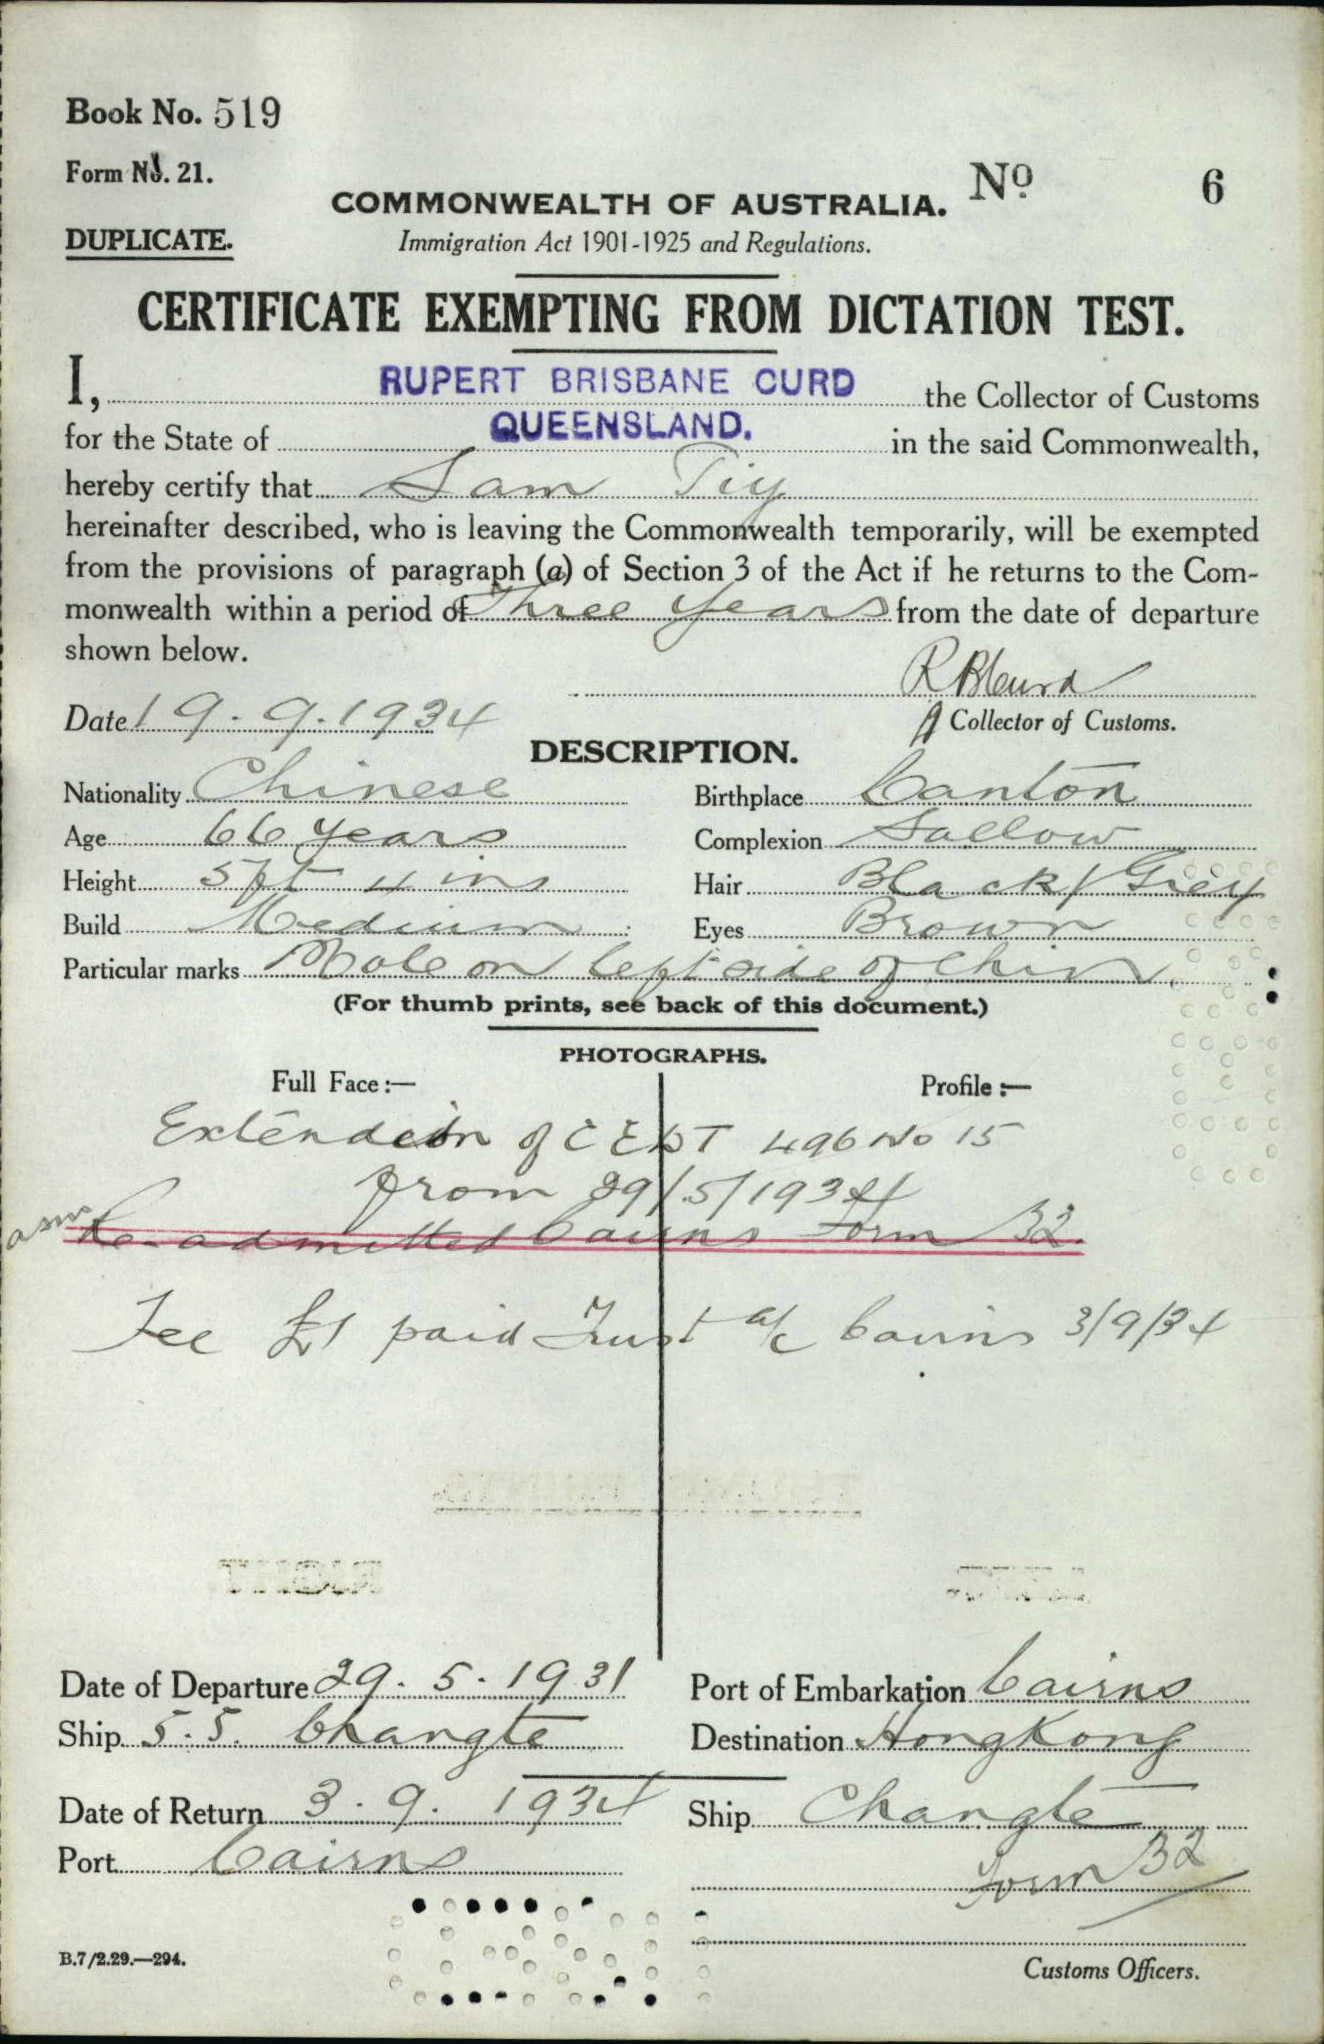 Book No. 519
Form No. 21.
COMMONWEALTH OF AUSTRALIA. No 6
DUPLICATE.
Immigration Act 1901-1925 and Regulations.
CERTIFICATE EXEMPTING FROM DICTATION TEST.
I, RUPERT BRISBANE CURD the Collector of Customs
for the State of QUEENSLAND. in the said Commonwealth,
hereby certify that Sam Tiy
hereinafter described, who is leaving the Commonwealth temporarily, will be exempted
from the provisions of paragraph (a) of Section 3 of the Act if he returns to the Com-
monwealth within a period of Three Years from the date of departure
shown below.
R B Curd
Date 19.9.1934 A Collector of Customs.
DESCRIPTION.
Nationality Chinese Birthplace Canton
Age 66 years Complexion Sallow
Height 5ft 4 ins Hair Black / Grey
Build Medium Eyes Brown
Particular marks Mole on left side of Chin.
(For thumb prints, see back of this document.)
PHOTOGRAPHS.
Full Face:— Profile:—
Extension of CEDT 496 No 15
from 29/5/1934
Re-admitted Cairns Form 32.
Fee £1 paid Trust a/c Cairns 3/9/34
Date of Departure 29.5.1931 Port of Embarkation Cairns
Ship S.S. Changte Destination HongKong
Date of Return 3.9.1934 Ship Changte
Port Cairns Form 32
B.7/2.29.—294.
Customs Officers.